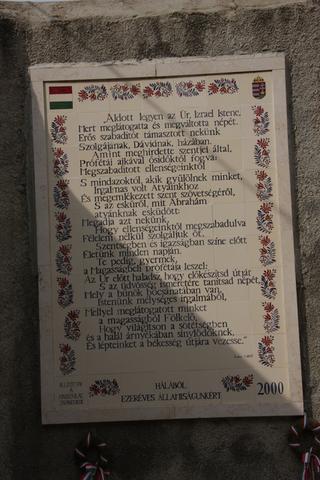 „Áldott legyen az Úr, Izrael Istene,
Mert meglátogatta és megváltotta népét.
Erős szabadítót támasztott nekünk
Szolgájának, Dávidnak, házában.
Amint meghirdette szentjei által,
Prófétái ajkával ősidőktől fogva:
Megszabadított ellenségeinktől
S mindazoktól, akik gyűlölnek minket,
Irgalmas volt Atyáinkhoz
És megemlékezett szent szövetségéről,
S az esküről, mit Ábrahám
atyánknak esküdött:
Megadja azt nekünk,
Hogy ellenségeinktől megszabadulva
Félelem nélkül szolgáljuk őt,
Szentségben és igazságban színe előtt
Életünk minden napján.
Te pedig, gyermek,
a Magasságbeli prófétája leszel:
Az Úr előtt haladsz, hogy előkészítsd útját
S az üdvösség ismeretére tanítsad népét,
Mely a bűnök bocsánatában van,
Istenünk mélységes irgalmából,
Mellyel meglátogatott minket
a magasságból Fölkelő,
Hogy világítson a sötétségben
és a halál árnyékában sínylődőknek,
És lépteinket a békesség útjára vezesse.”
HÁLÁBÓL
EZERÉVES ÁLLAMISÁGUNKÉRT
2000